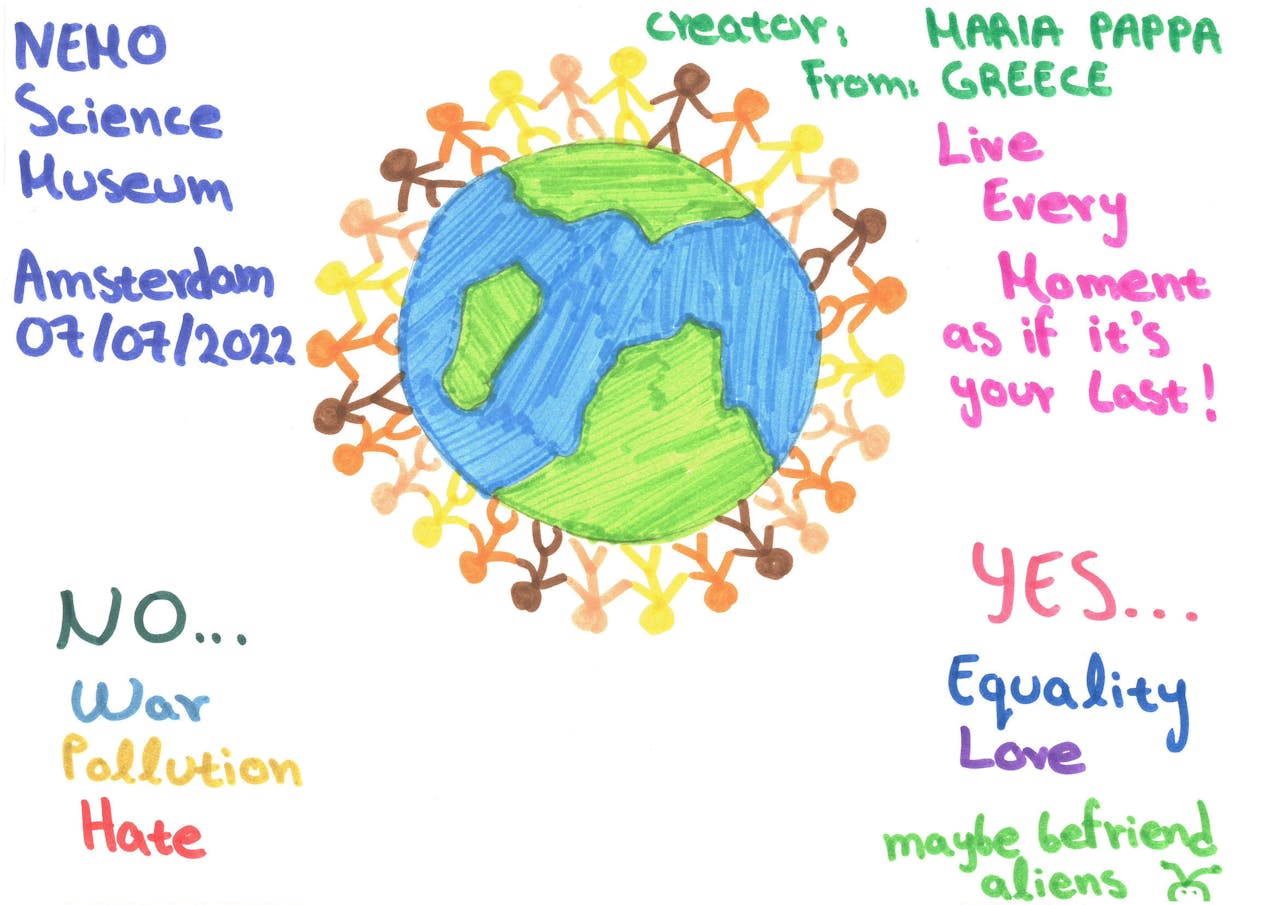 NEMO
Science
Museum
Amsterdam
07/07/2022
creator: MARIA PAPPA
From: GREECE
Live
Every
Moment
as if it's
your Last!
NO...
War
Pollution
Hate
YES...
Equality
Love
maybe befriend
aliens